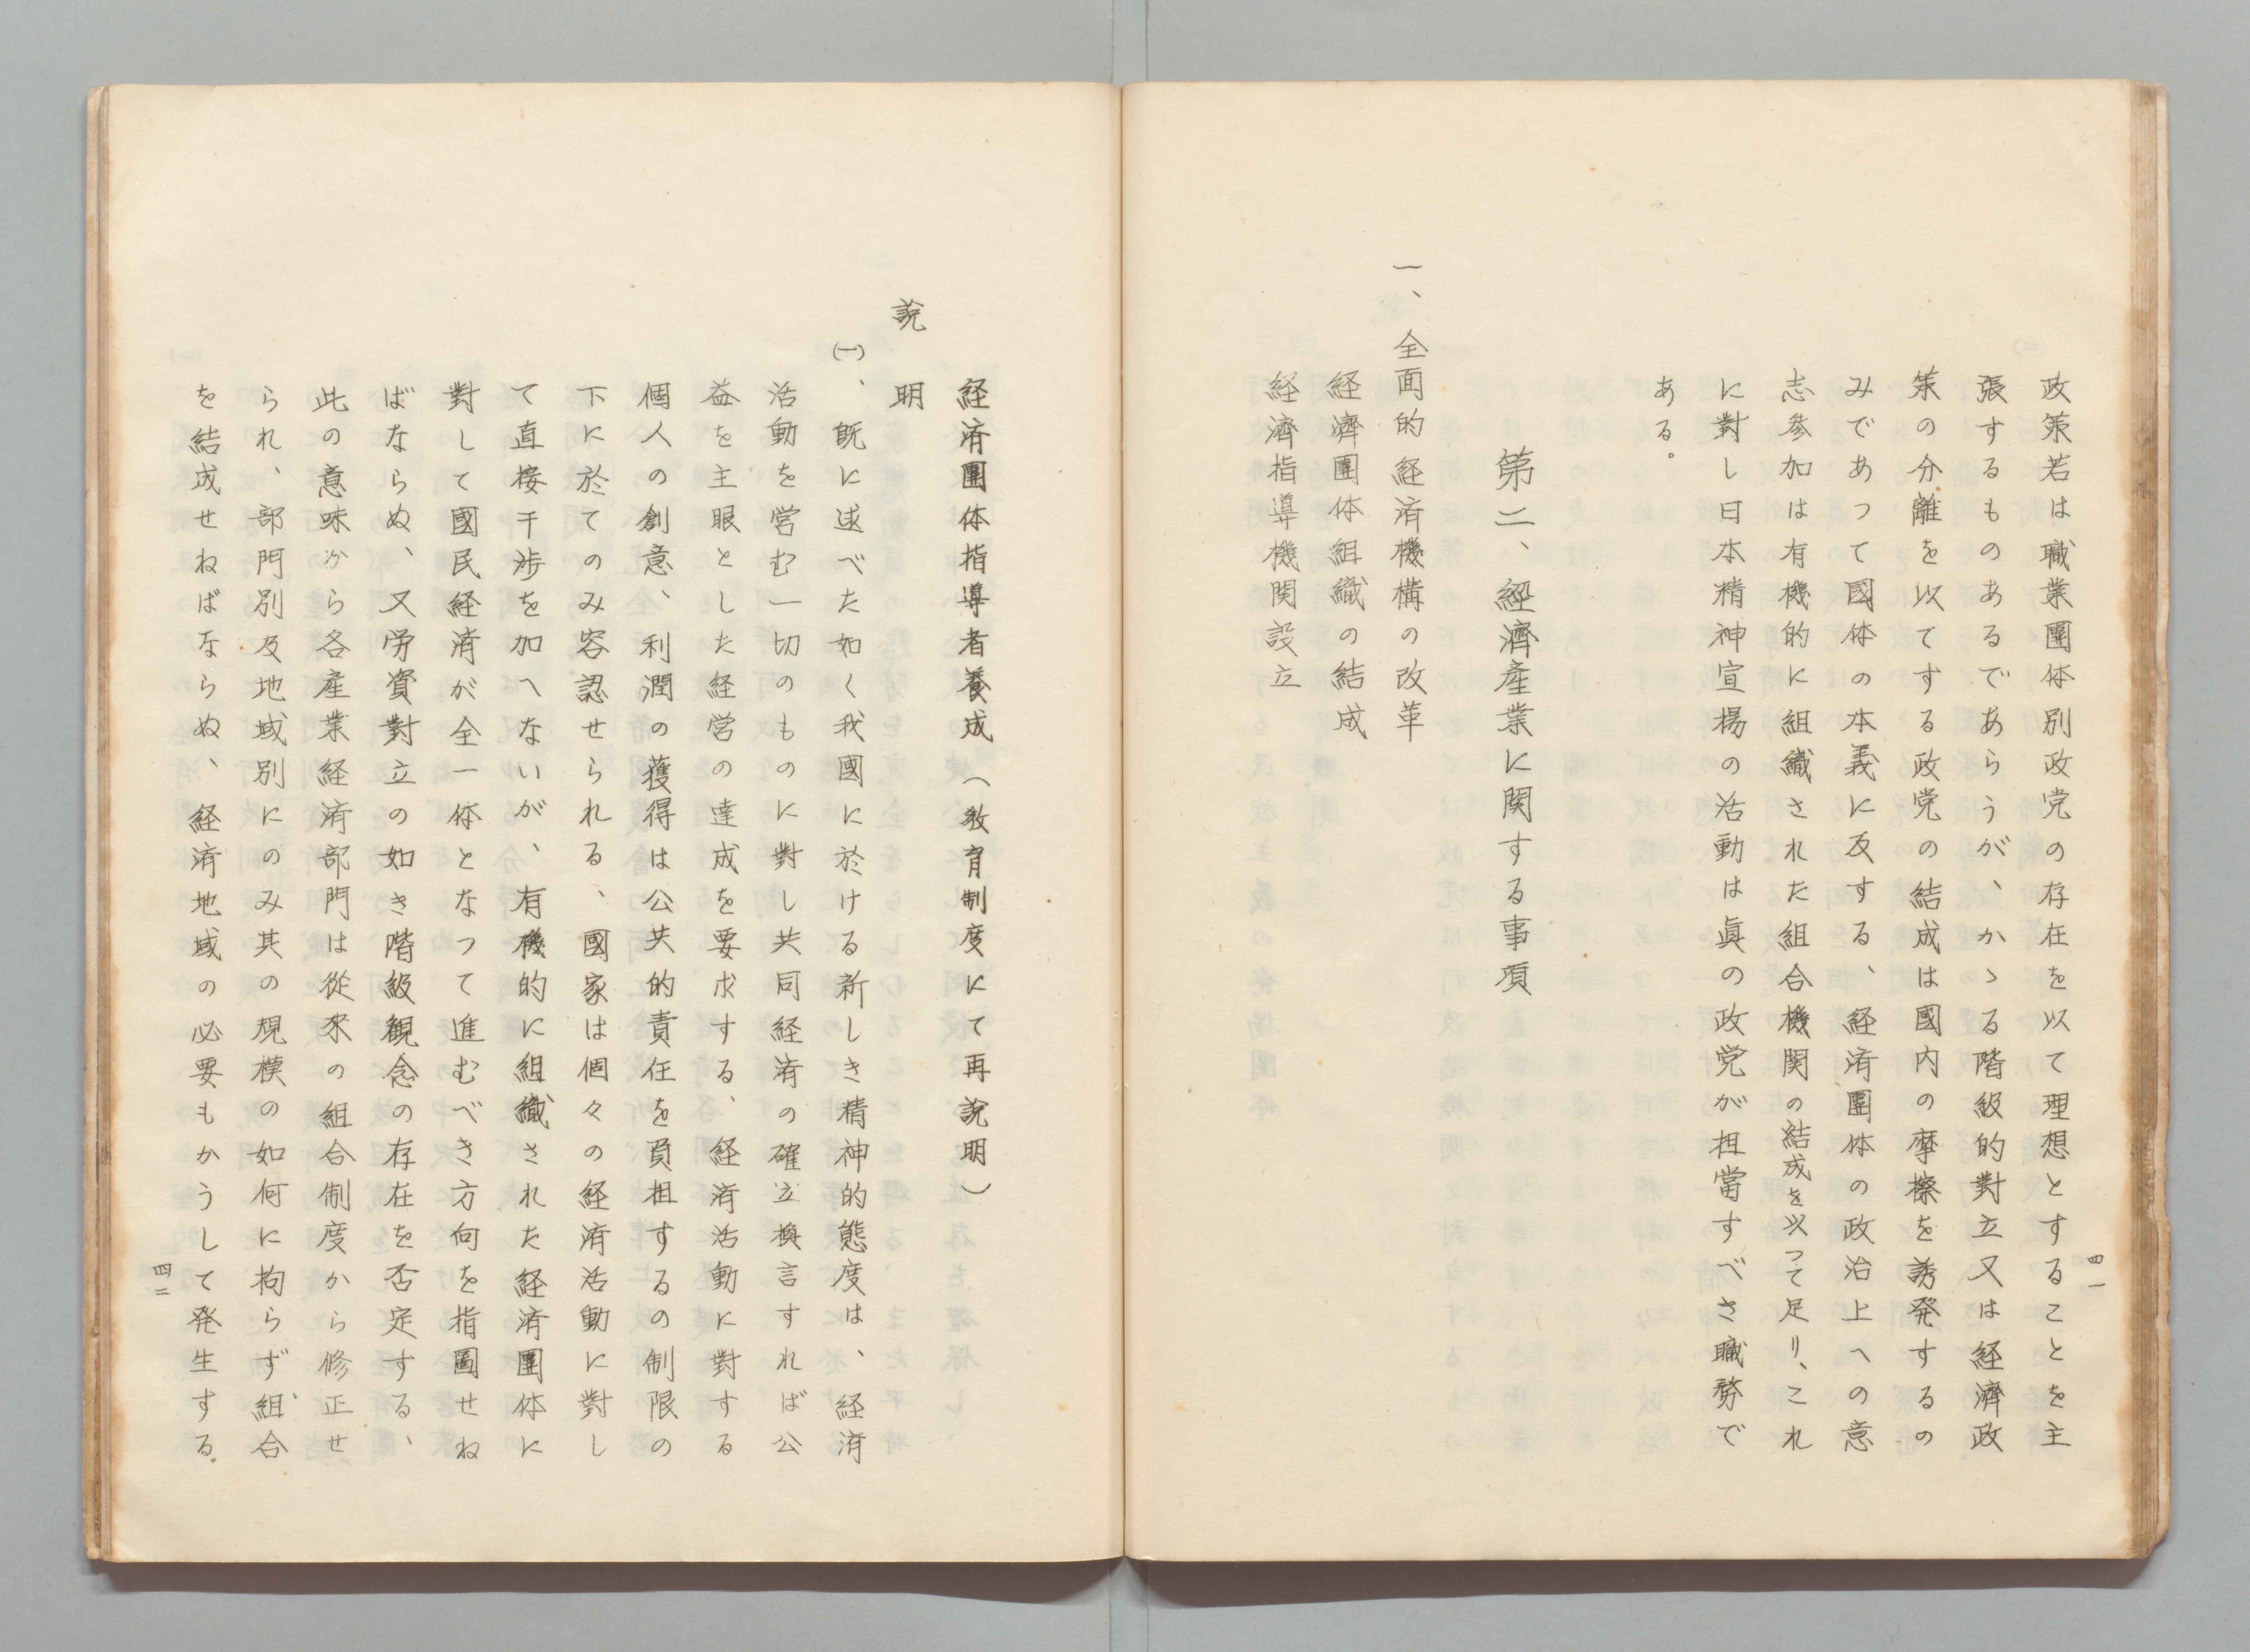 政策若は職業團体別政党の存在を以て理想とすることを主
張するものあるであらうが、かゝる階級的對立又は経濟政
策の分離を以てする政党の結成は國内の摩擦を誘発するの
みであつて國体の本義に反する、経済團体の政治上への意
志参加は有機的に組織された組合機関の結成を以つて足り、これ
に對し日本精神宣揚の活動は眞の政党が担當すべき職務で
ある。
第二、經濟産業に関する事項
一、全面的経済機構の改革
経濟團体組織の結成
経濟指導機関設立
四一
経済團体指導者養成（教育制度にて再説明）
説明
㈠、既に述べた如く我國に於ける新しき精神的態度は、経済
活動を営む一切のものに對し共同経済の確立換言すれば公
益を主眼とした経営の達成を要求する、経済活動に對する
個人の創意、利潤の獲得は公共的責任を負担するの制限の
下に於てのみ容認せられる、國家は個々の経済活動に對し
て直接干渉を加へないが、有機的に組織された経済團体に
對して國民経済が全一体となつて進むべき方向を指圖せね
ばならぬ、又労資對立の如き階級観念の存在を否定する、
此の意味から各産業経済部門は從來の組合制度から修正せ
られ、部門別及地域別にのみ其の規模の如何に拘らず組合
を結成せねばならぬ、経済地域の必要もかうして発生する。
四二